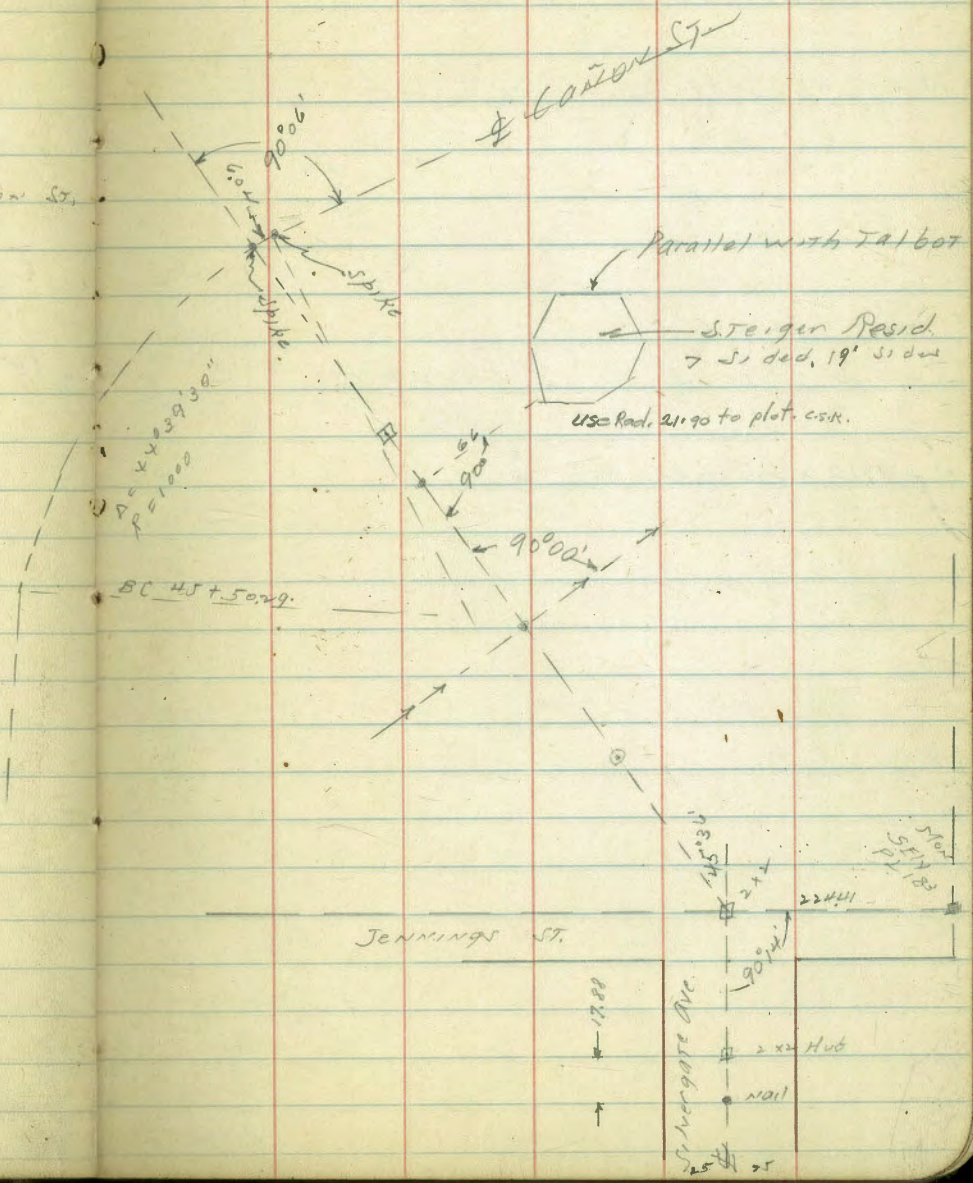 ℄ CAÑON ST.
90°06'
Spike
Spike.
Parallel with Talbot
STeiger Resid.
7 Sided, 19' Sides
USE Rad. 21.90 to plot. C.S.K.
R = 1000
90°
90°00'
BC 45 + 50.29.
45°36'
2 x 2
224.41
Mon
JENNINGS ST.
90°14'
17.88
Silvergate Ave.
2 x 2 Hub
Nail
25 ℄ 25
ST.